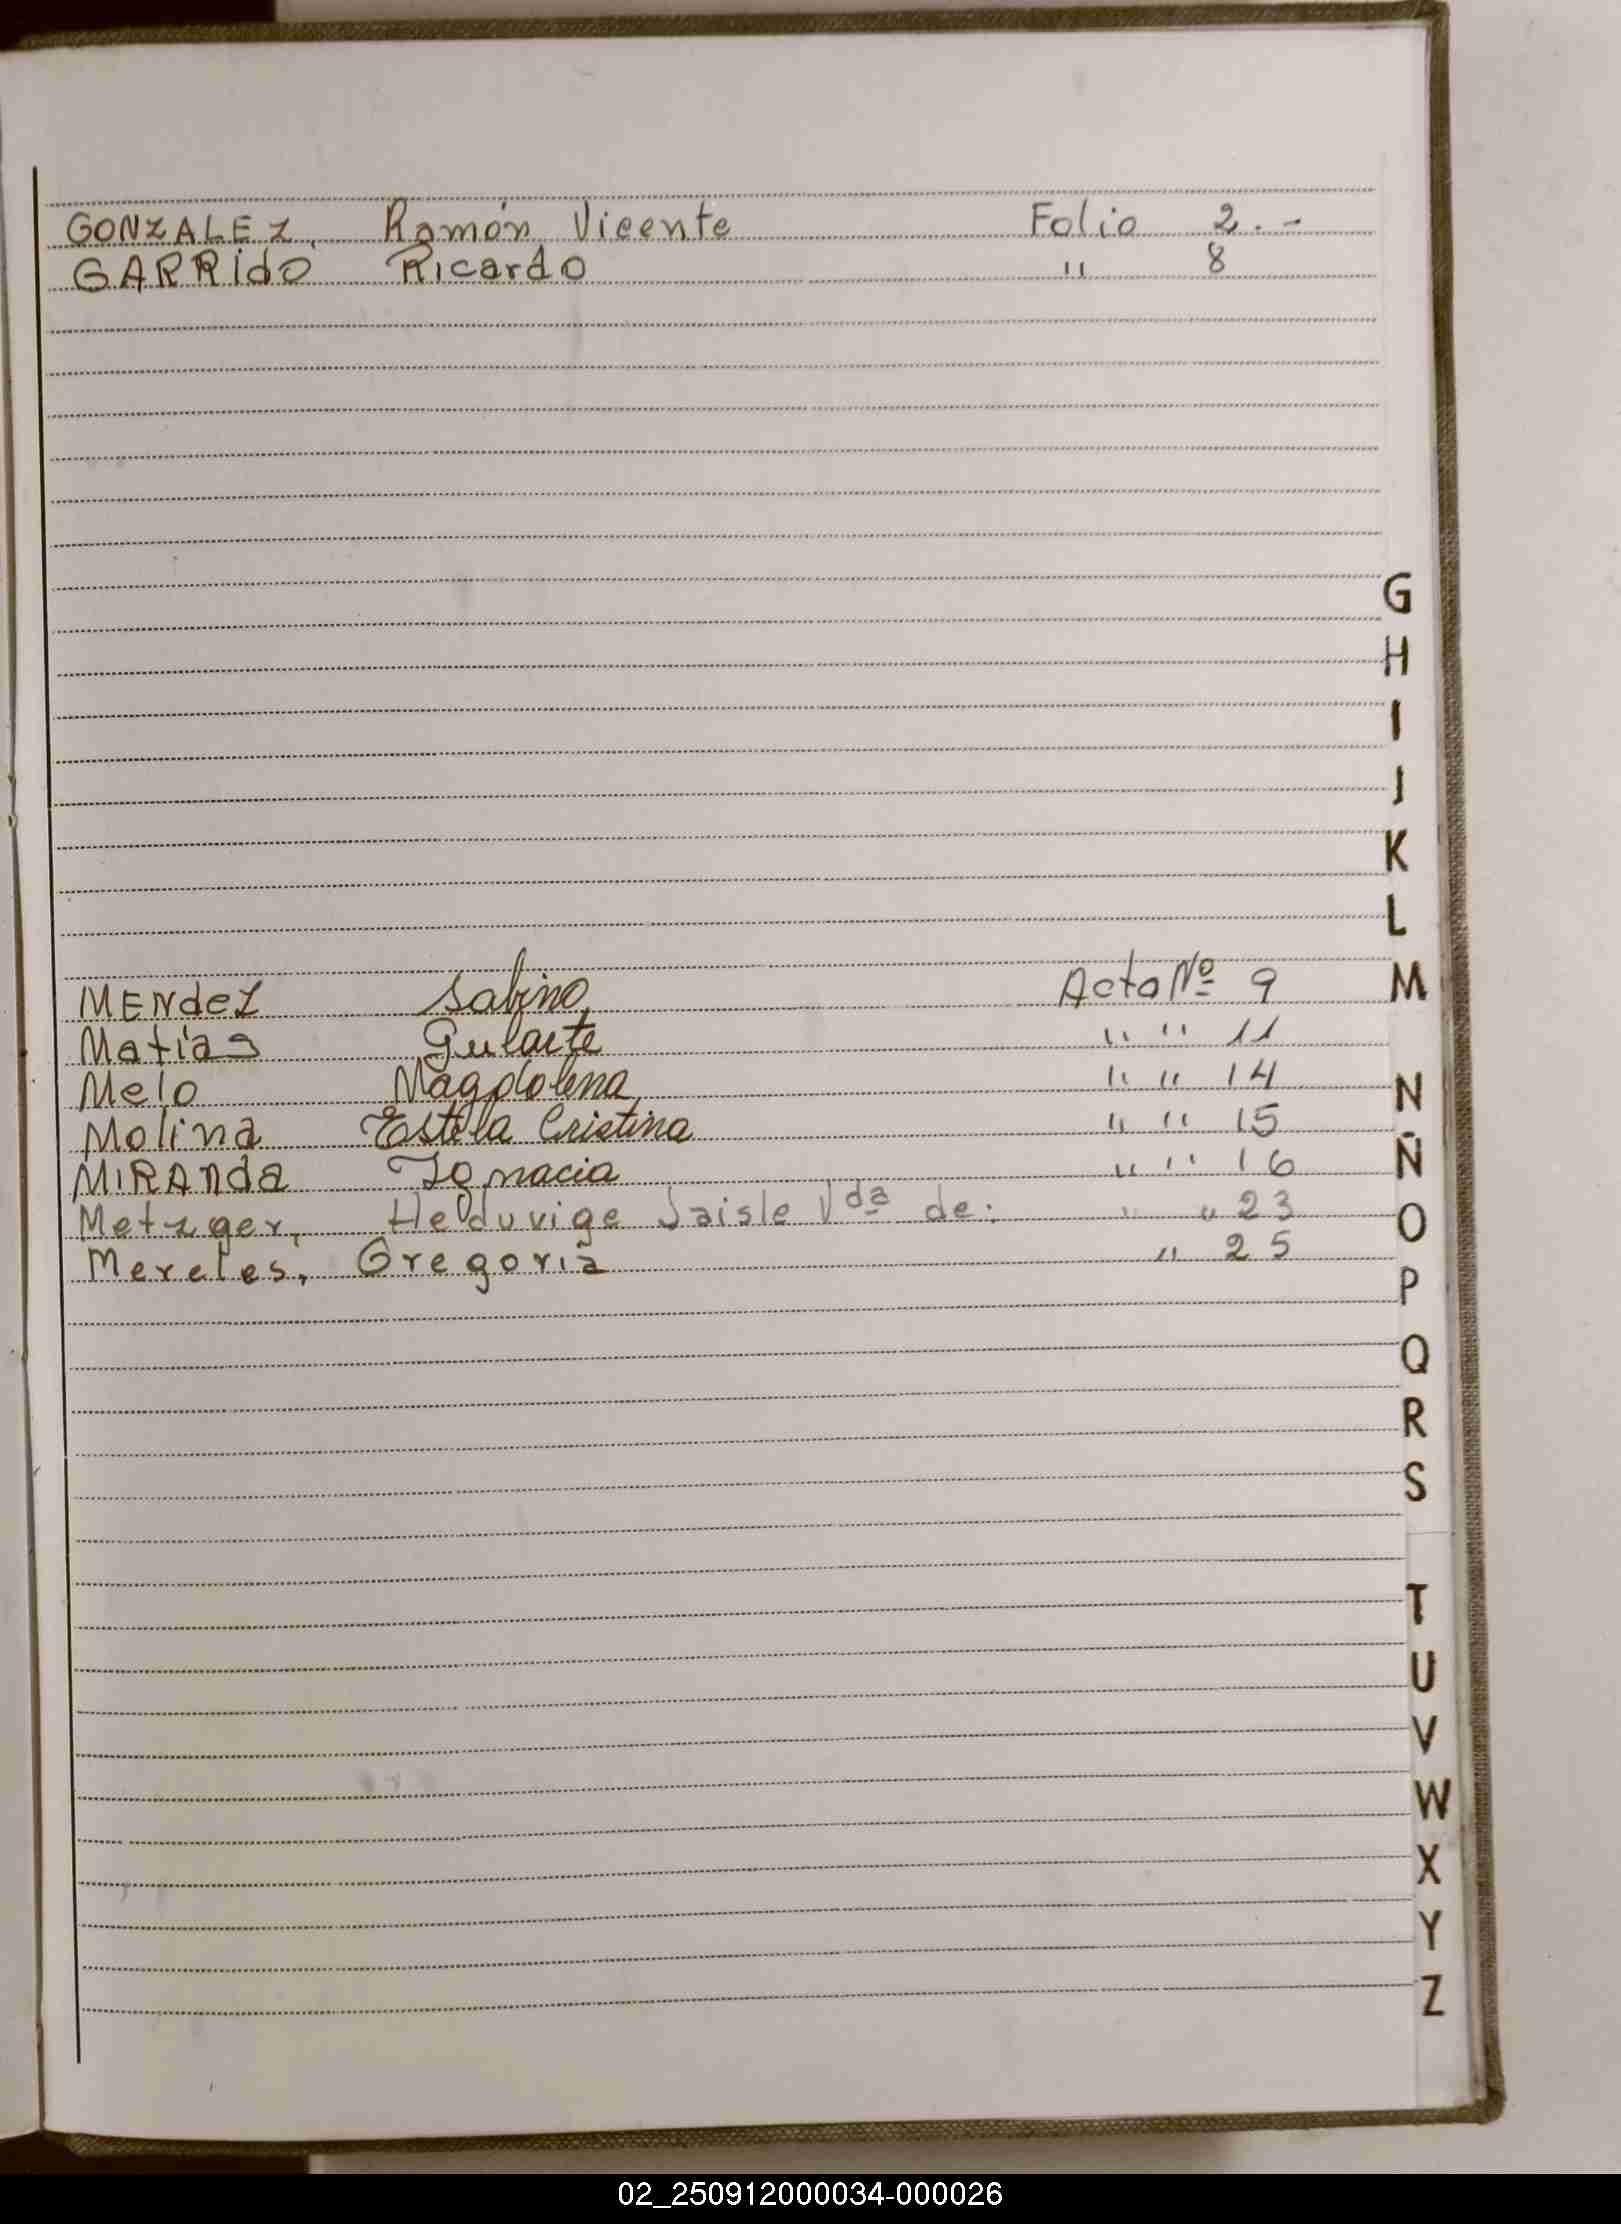 GONZALEZ, Ramón Vicente Folio 2.-
GARRido Ricardo " 8
G
H
I
J
K
L
MENdeZ Sabino Acta Nº 9 M
Matías Gularte " " 11
Melo Magdalena " " 14 N
Molina Estela Cristina " " 15
MiRANda Ignacia " " 16 Ñ
Metzger, Helduvige Saisle Vda de: " " 23 O
Mereles, Gregoria " 25
P
Q
R
S
T
U
V
W
X
Y
Z
02_250912000034-000026